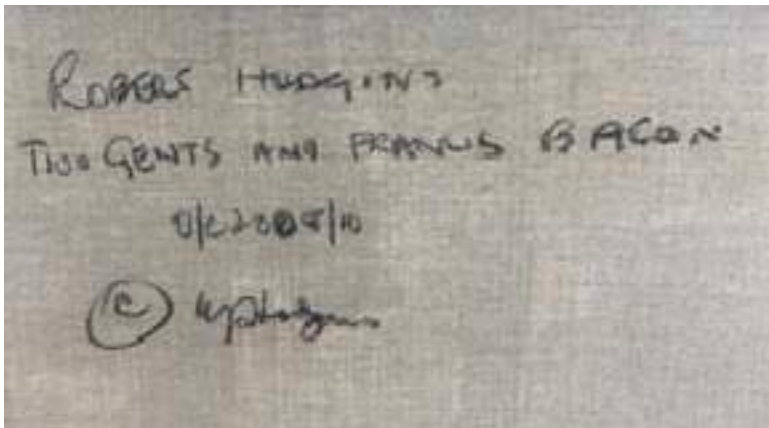 ROBERT HODGINS
TWO GENTS AND FRANCIS BACON
O/C 2008/10
©